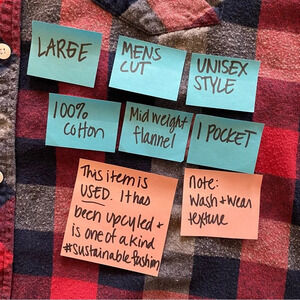 LARGE
MENS
CUT
UNISEX
STYLE
100%
cotton
Midweight
flannel
1 POCKET
This item is
USED. It has
been upcyled +
is one of a kind
#sustainablefashion
note:
Wash + Wear
texture